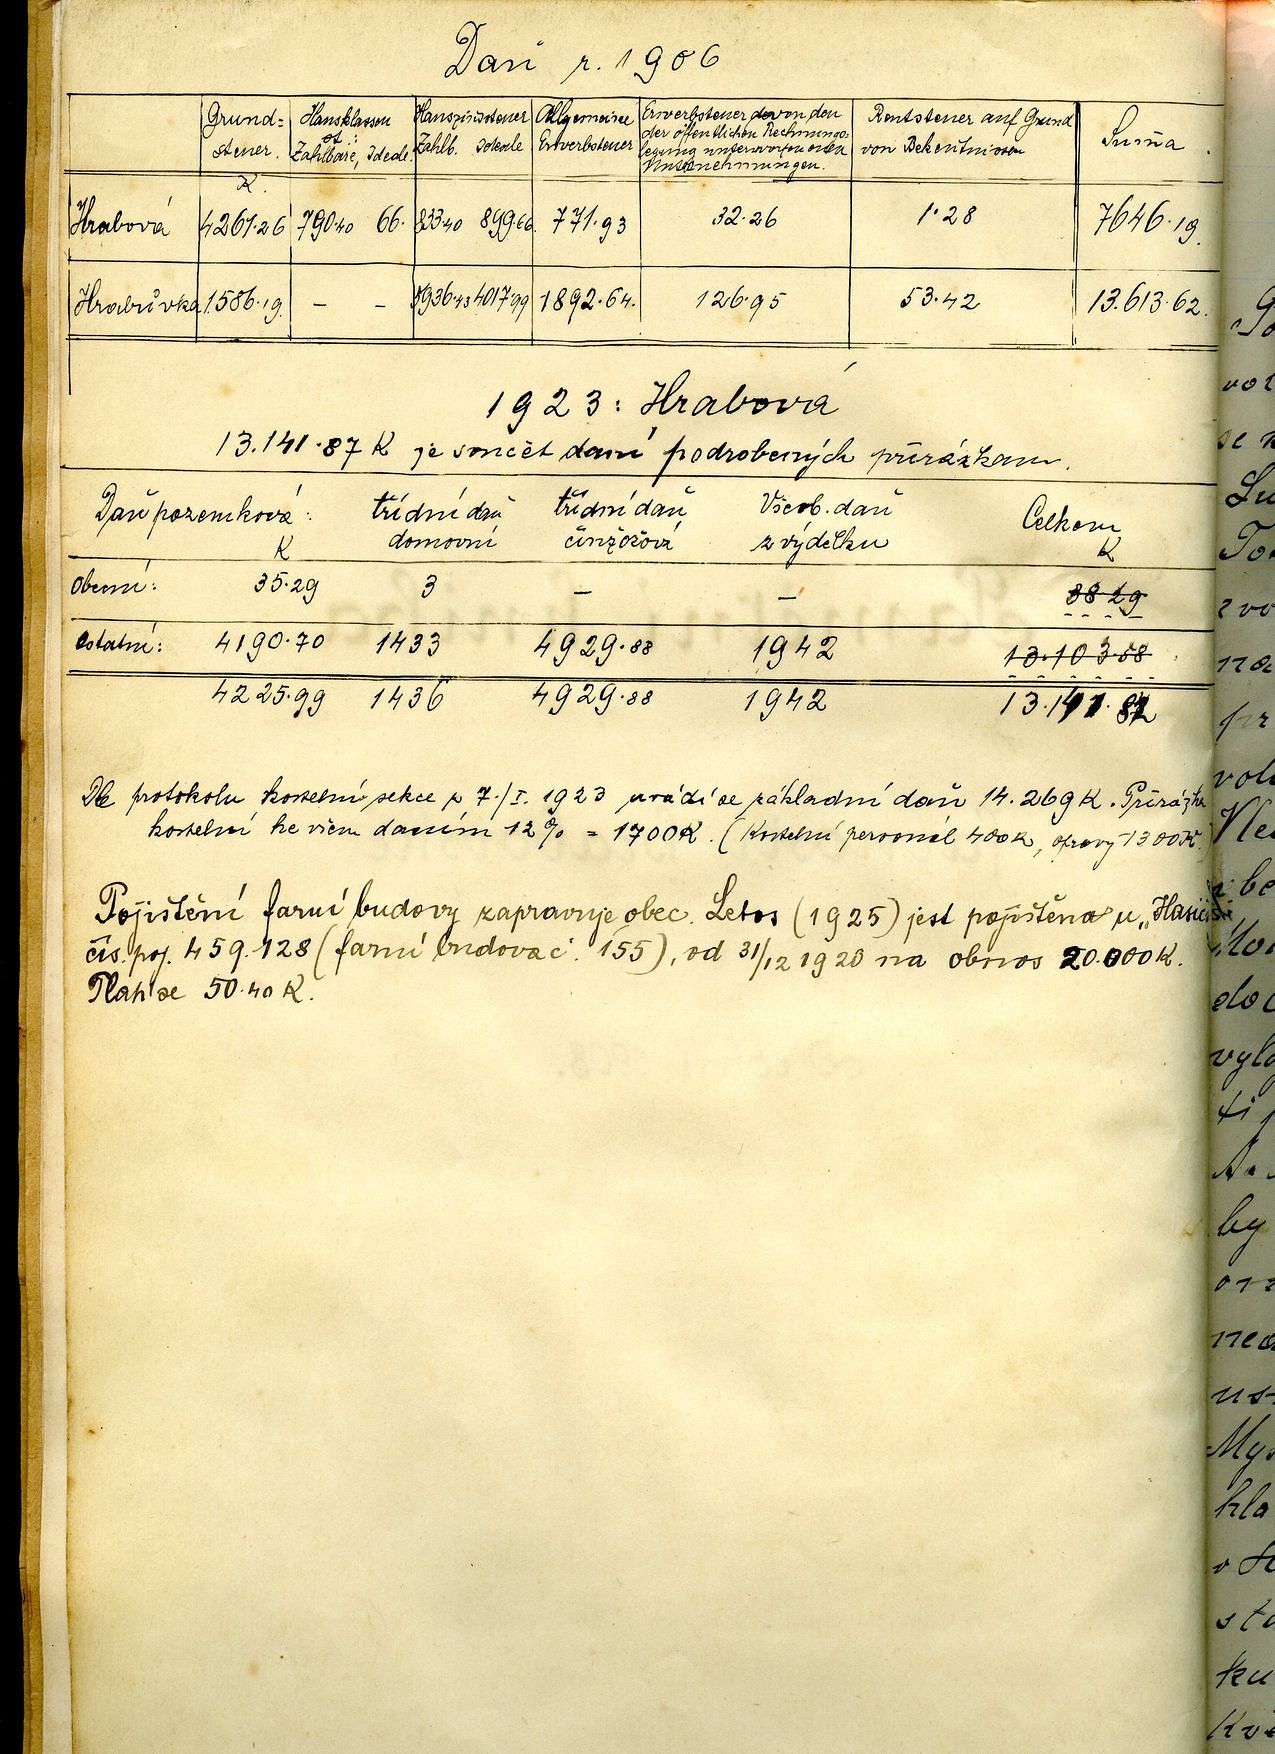 Daň r. 1906
Grund= steuer. Hausklassen st.: Zahlbare, Ideale. Hauszinssteuer Zahlb. Ideale Allgemeine Erwerbsteuer Erwerbsteuer von den der öffentlichen Rechnungs= legung unterworfenen Unternehmungen. Rentsteuer auf Grund von Bekentnissen Suma
K.
Hrabová 4261.26 790.40 66. 833.40 899.66 771.93 32.26 1.28 7646.19.
Hrabůvka 1.586.19. – – 5936.43 4017.99 1892.64. 126.95 53.42 13.613.62.
1923: Hrabová
13.141.87 K je součet daní podrobených přirážkam.
Daň pozemková: třídní daň třídní daň Všeob. daň Celkem
K domovní činžovní z výdělku K
obecní: 35.29 3 – – 38.29
ostatní: 4190.70 1433 4929.88 1942 13.103.58
4225.99 1436 4929.88 1942 13.141.87
Dle protokolu kostelní sekce z 7./I. 1923 uvádí se základní daň 14.269 K. Přirážka
kostelní ke všem daním 12% = 1700 K. (Kostelní personál 400 K, opravy 1300 K.)
Pojištění farní budovy zapravuje obec. Letos (1925) jest pojištěna u „Hasičské
čís. poj. 459.128 (farní budova č. 155), od 31/12 1920 na obnos 20.000 K.
Platí se 50.40 K.